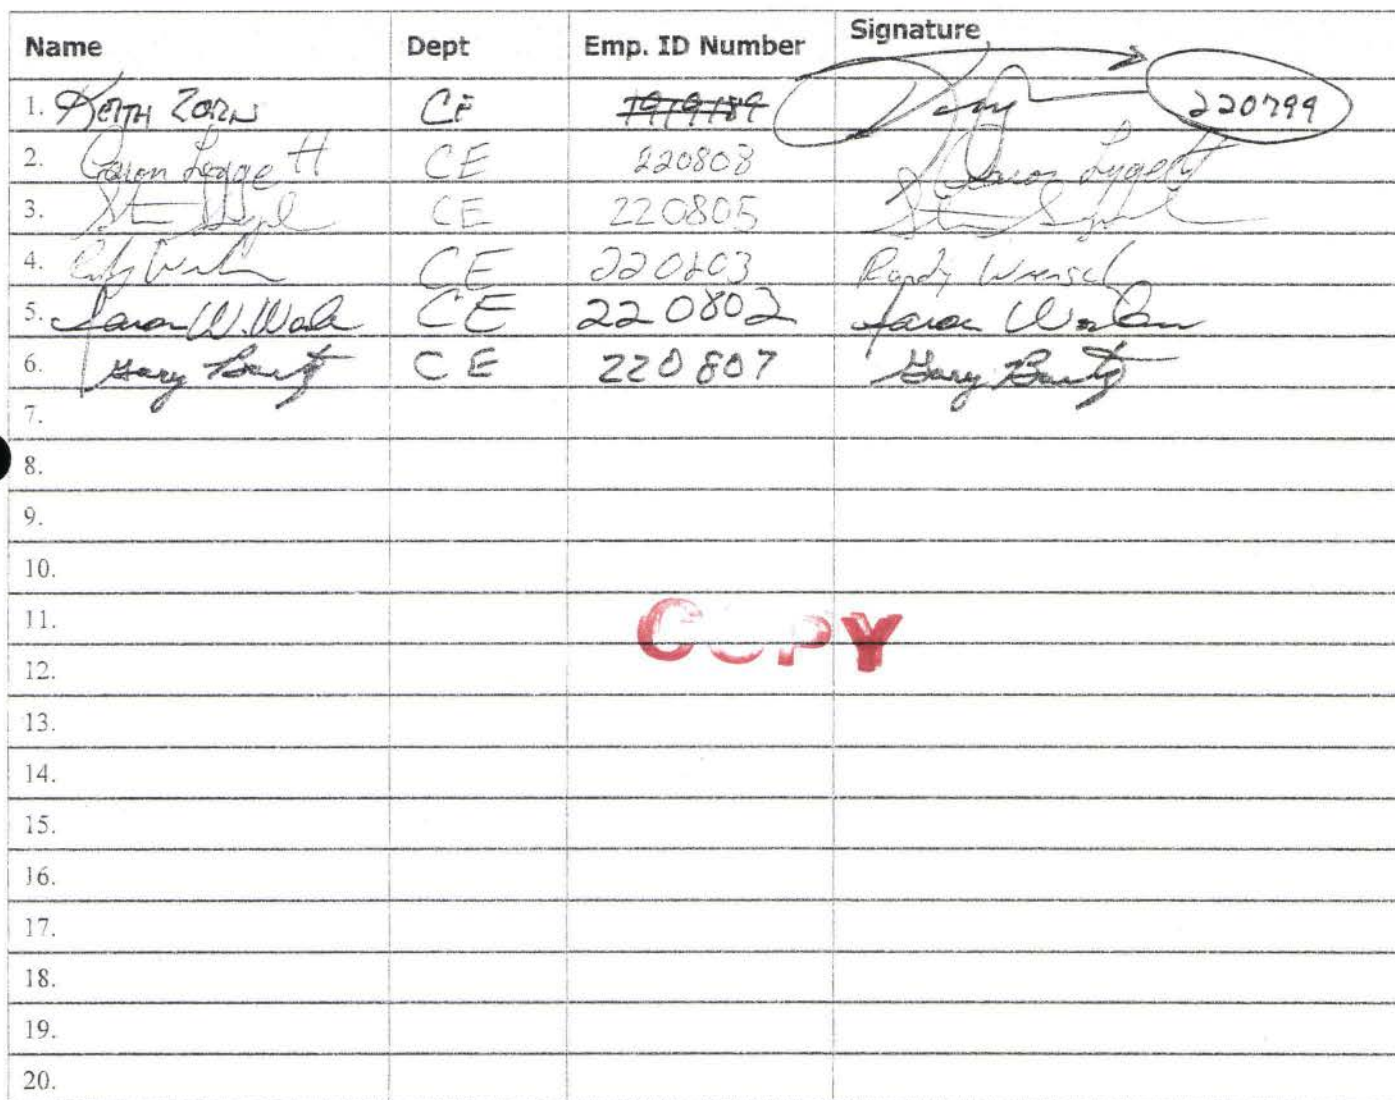 Name Dept Emp. ID Number Signature
1. KEITH ZORN CE 220799
2. Aaron Leggett CE 220808 Aaron Leggett
3. CE 220805
4. CE Randy Wrensch
5. Aaron W. CE 220802 Aaron
6. Gary CE 220807 Gary
7.
8.
9.
10.
11.
COPY
12.
13.
14.
15.
16.
17.
18.
19.
20.